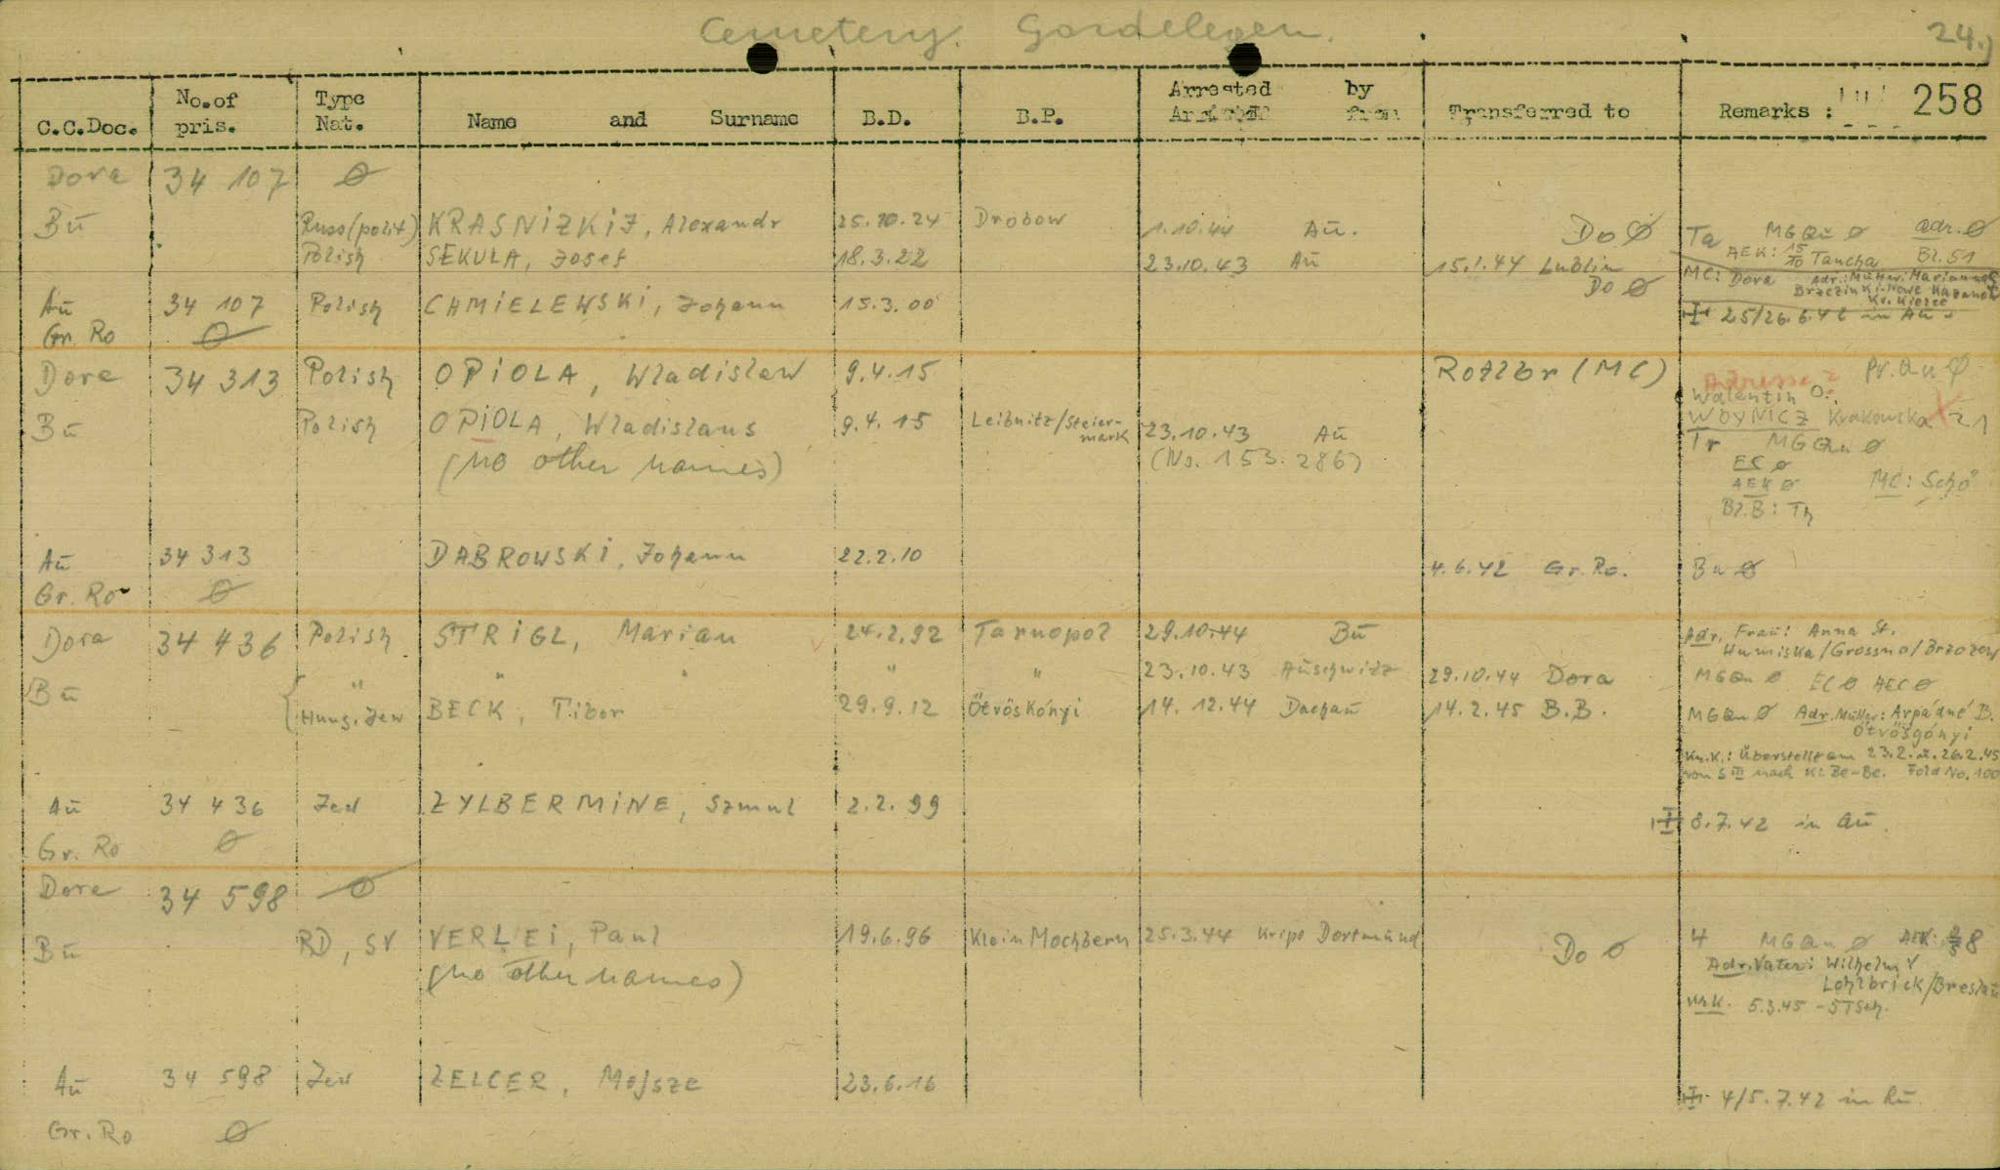 Cemetery. Gardelegen. 24.)
C.C.Doc. No.of pris. Type Nat. Name and Surname B.D. B.P. Arrested by Transferred to Remarks : 258
Dora 34 107 Ø
Bu Russ(polit) KRASNIZKIJ, Alexandr 25.10.24 Drobow 1.10.44 Au. Do Ø Ta MGQu Ø adr. Ø
AEK: 15/10 Taucha Bl.51
Polish SEKULA, Josef 18.3.22 23.10.43 Au 15.1.44 Lublin MC: Dora Adr.: Mutter: Marianna
Do Ø Brzezinki-Nowe
Kr. Kielce
Au 34 107 Polish CHMIELEWSKI, Johann 15.3.00 25/26.6.42 in Au
Gr. Ro Ø
Dora 34 313 Polish OPIOLA, Wladislaw 9.4.15 Rotlbr (MC) Adresse Pr.Qu Ø
Walentin O.,
WOYNICZ Krakowska 21
Bu Polish OPIOLA, Wladislaus 9.4.15 Leibnitz/Steier-
mark 23.10.43 Au Tr MGQu Ø
(no other names) (No. 153.286) EC Ø
AEK Ø MC: Schö
Bl.B: Th
Au 34 313 DABROWSKI, Johann 22.2.10 4.6.42 Gr. Ro. Bu Ø
Gr. Ro Ø
Dora 34 436 Polish STRIGL, Marian 24.2.92 Tarnopol 29.10.44 Bu Adr. Frau: Anna St.
Humiska/Grossno/Brzozow
Bu " " " " 23.10.43 Auschwitz 29.10.44 Dora MGQu Ø EC Ø AEC Ø
Hung. Jew BECK, Tibor 29.9.12 Ötvöskónyi 14.12.44 Dachau 14.2.45 B.B. MGQu Ø Adr. Mutter: Arpádné B.
Ötvösgónyi
Kn.K.: Überstellt am 23.2. u. 26.2.45
von S III nach Kl. Be-Be. Fold No. 100
Au 34 436 Jew ZYLBERMINE, Szmul 2.2.99 8.7.42 in Au.
Gr. Ro Ø
Dora 34 598 Ø
Bu RD, SV VERLEI, Paul 19.6.96 Klein Mochbern 25.3.44 Kripo Dortmund Do Ø 4 MGQu Ø AEK: 8
(no other names) Adr. Vater: Wilhelm V
Lohlbrick/Breslau
5.3.45 -
Au 34 598 Jew ZELCER, Mojsze 23.6.16 4/5.7.42 in Au.
Gr. Ro Ø